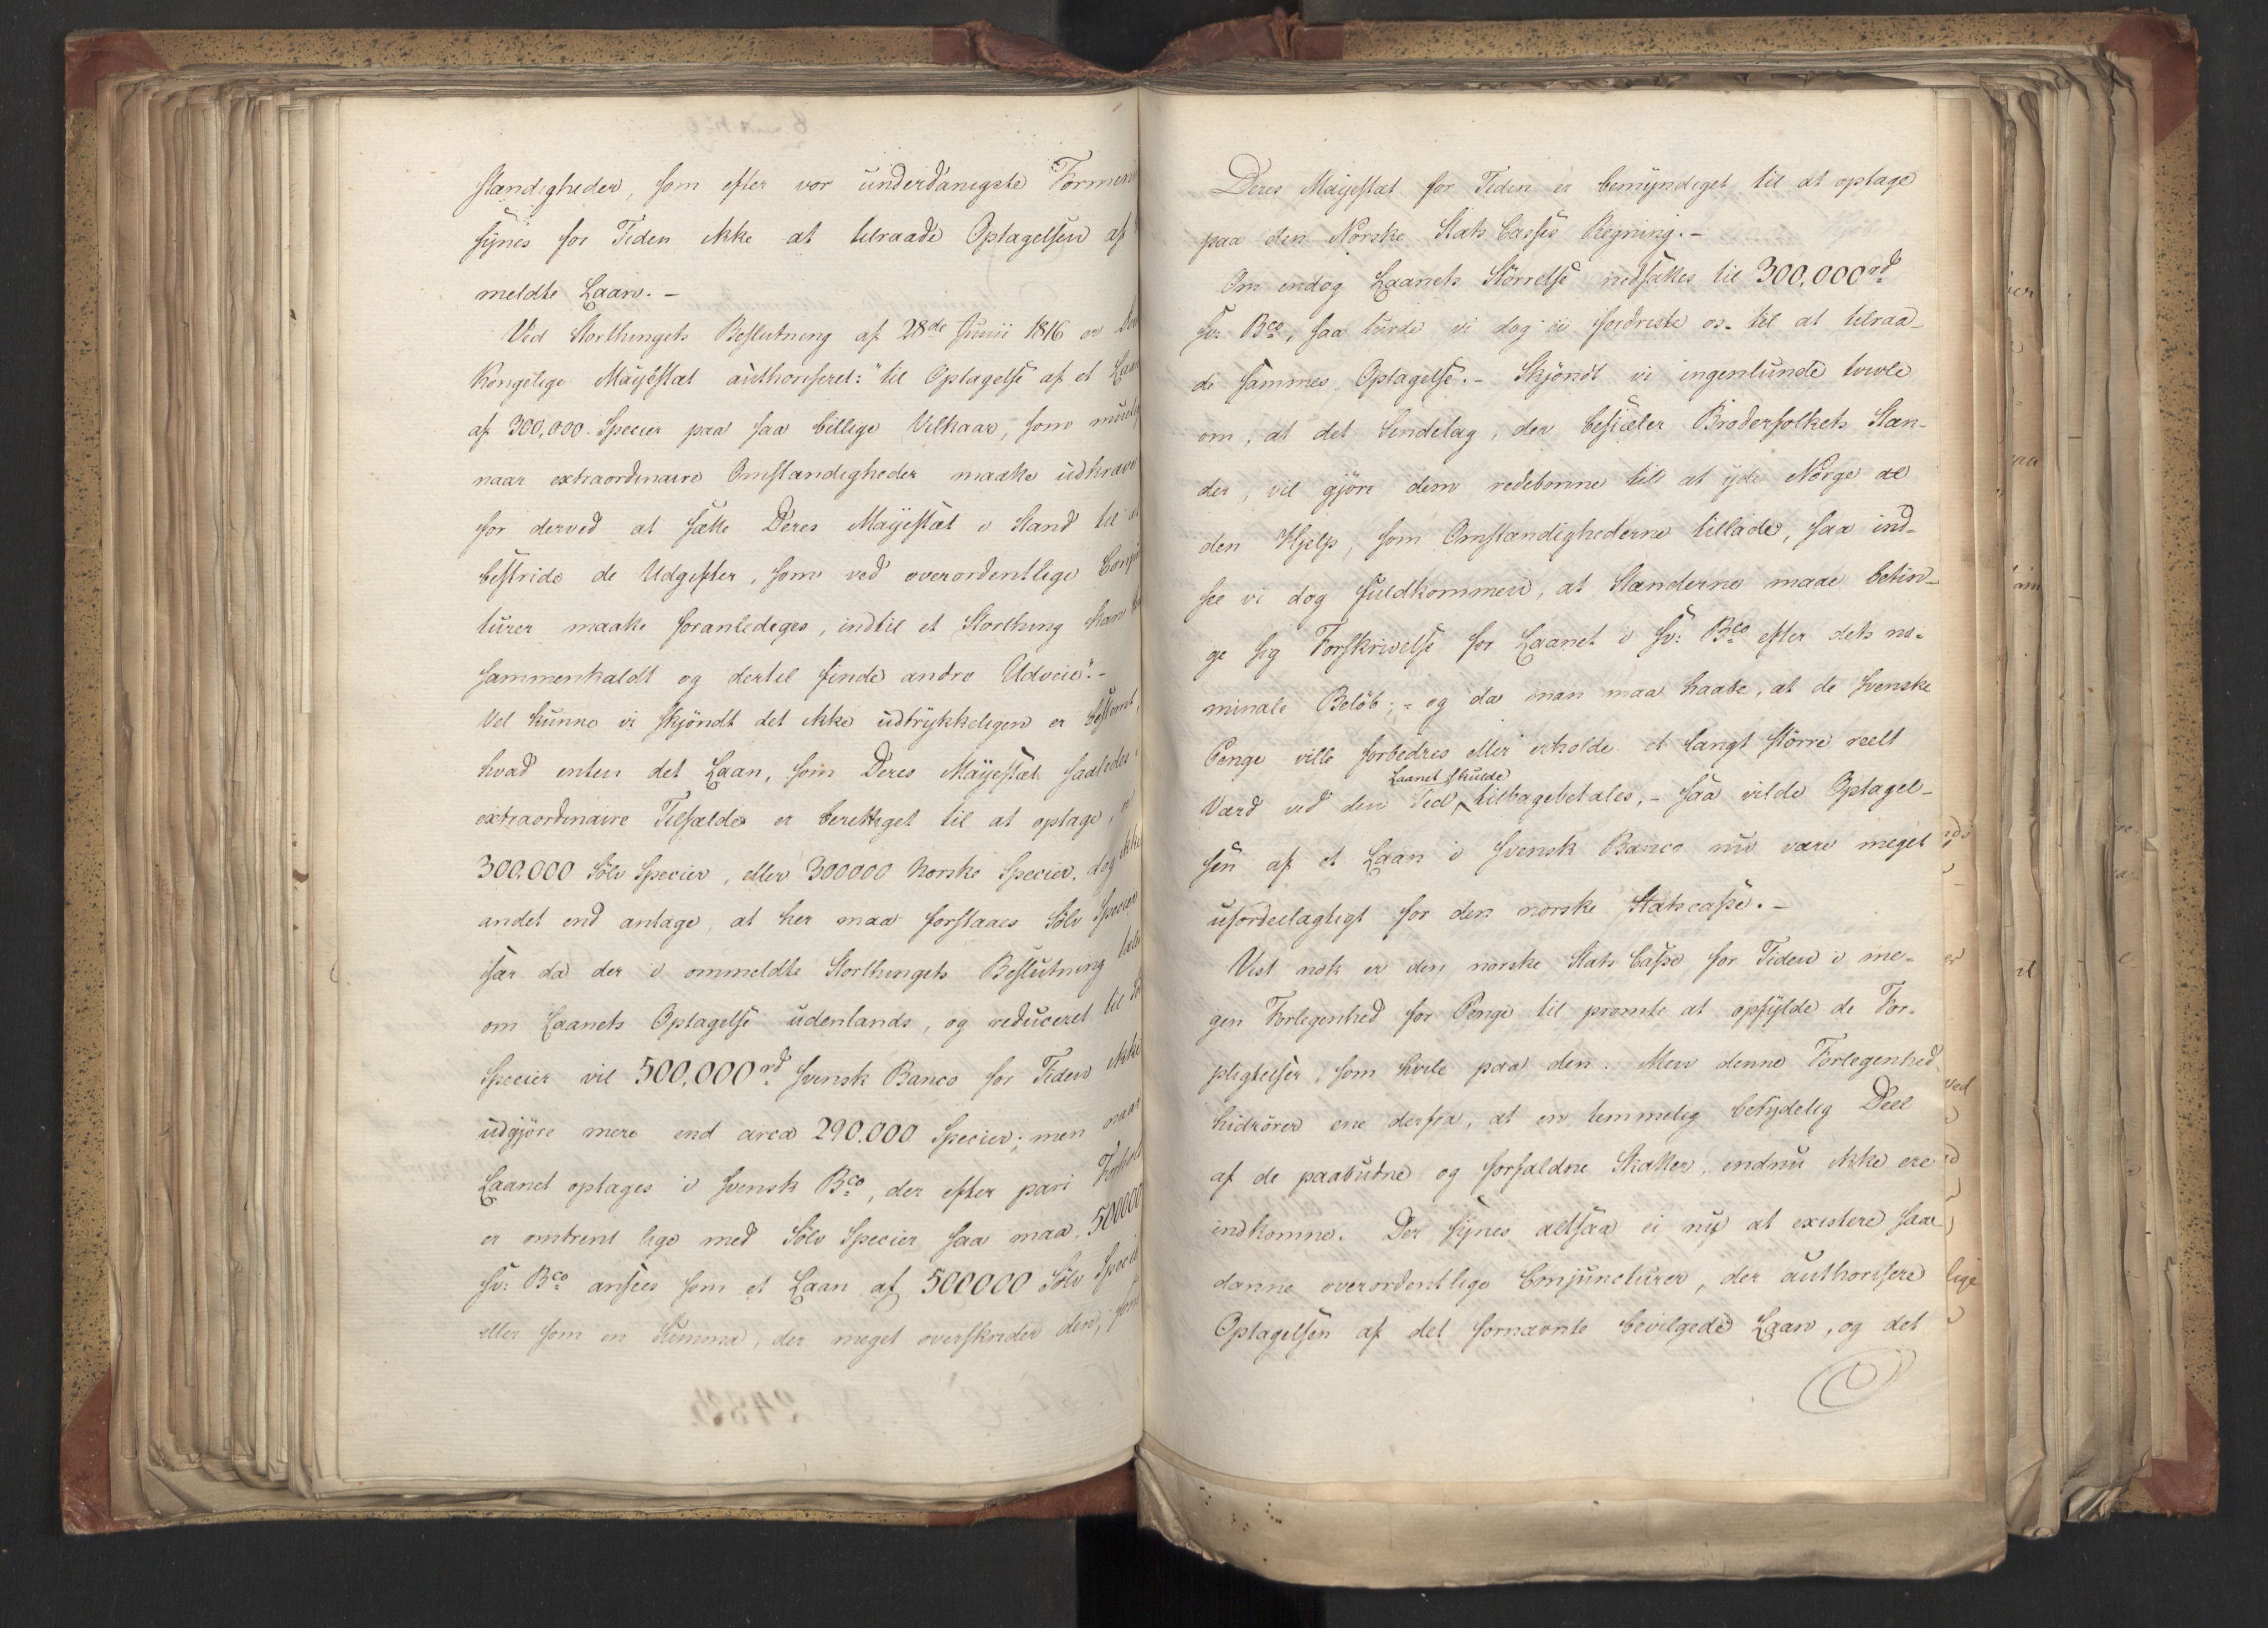 standigheder, som efter vor underdanigste Formen
synes for Tiden ikke at tilraade Optagelsen af
meldte Laan. -
Ved Storthingets Beslutning af 28de Junii 1816 er
Kongelige Mayestæt authoriseret: "til Optagelse af et Laan
af 300,000 Specier paa saa billige Vilkaar, som muelig
naar extraordinaire Omstændigheder maatte udkræve
for derved at sætte Deres Mayestæt i Stand til at
bestride de Udgifter, som ved overordentlige Conj
turer maatte foranlediges, indtil et Storthing kan
sammenkaldt og dertil finde andre Udveie". -
Vel kunne vi skjöndt det ikke udtrykkeligen er bestemt,
hvad enten det Laan, som Deres Mayestæt saaledes i
extraordinaire Tilfælde er berettiget til at optage, er
300,000 Sölv Specier, eller 300000 Norske Specier, dog ikke
andet end antage, at her maa forstaaes Sölv Specier
især da der i ommeldte Storthingets Beslutning tales
om Laanets Optagelse udenlands, og reduceret til
Specier vil 500,000 rd Svensk Banco for Tiden ikke
udgjöre mere end circa 290.000 Specier; men naar
Laanet optages i Svensk Bco, der efter pari Forhold
er omtrent lige med Sölv Specier saa maa 500000
Sv: Bco ansees som et Laan af 500000 Sölv Specie
eller som en Summa, der meget overskrider den, som
Deres Mayestæt for Tiden er bemyndiget til at optage
paa den Norske Stats Casses Regning. -
Om endog Laanets Störrelse nedsættes til 300,000 rd
Sv: Bco, saa turde vi dog ei fordriste os til at tilraa-
de sammes Optagelse. - Skjöndt vi ingenlunde tvivle
om, at det Sindelag, der besiæler Broderfolkets Stæn-
der, vil gjöre dem redebonne till at yde Norge al
den Hjelp, som Omstændighederne tillade, saa ind-
see vi dog fuldkommen, at Stænderne maae betin-
ge sig Forskrivelse for Laanet i Sv: Bco efter dets no-
minale Belöb; - og da man maa haabe, at de Svenske
Penge ville forbedres eller erholde et langt större reelt
Laanet skulde
Værd ved den Tid, tilbagebetales, - saa vilde Optagel-
sen af et Laan i Svensk Banco nu være meget
ufordeelagtigt for den norske Statscasse. -
Vist nok er den norske Stats Casse for Tiden i me-
gen Forlegenhed for Penge til promte at opfylde de For-
pligtelser, som hvile paa den. Men denne Forlegenhed
hidrörer ene derfra, at en temmelig betydelig Deel
af de paabudne og forfaldne Skatter, endnu ikke ere
indkomne. Der synes altsaa ei nu at existere saa-
danne overordentlige Conjuncturer, der authorisere
Optagelsen af det fornævnte bevilgede Laan, og det